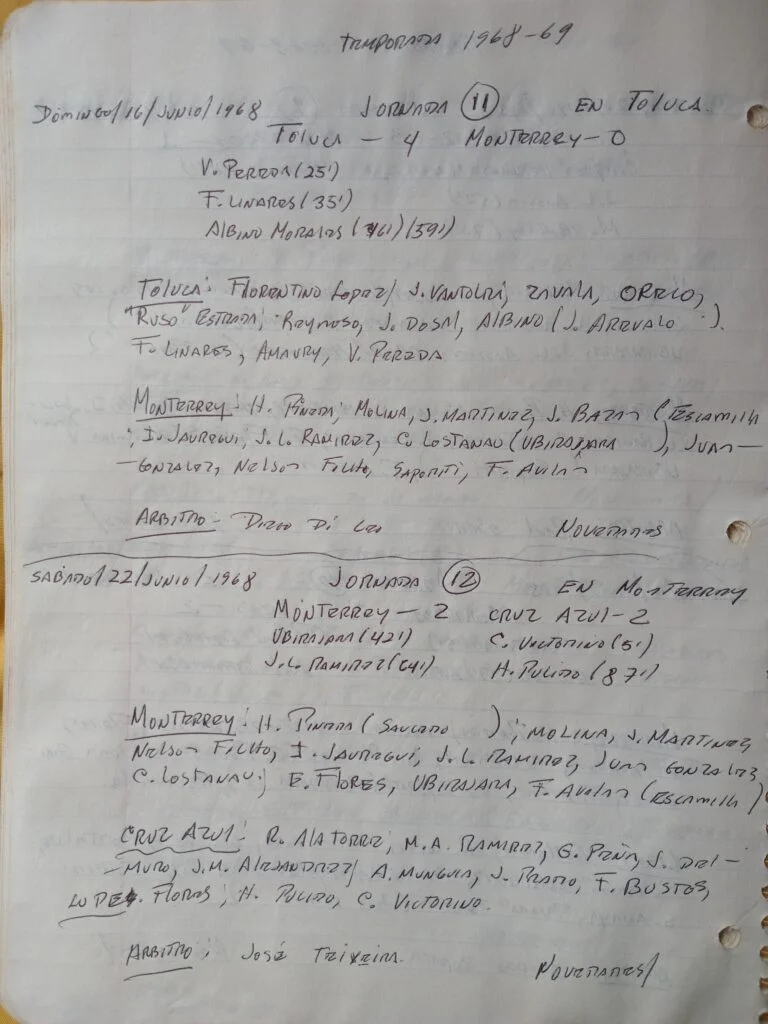 TEMPORADA 1968-69
DOMINGO/16/JUNIO/1968 JORNADA 11 EN TOLUCA.
TOLUCA - 4 MONTERREY - 0
V. PEREDA (25')
F. LINARES (35')
ALBINO MORALES (46') (59')
TOLUCA: FLORENTINO LOPEZ/ J. VANTOLRÁ, ZAVALA,
"RUSO" ESTRADA; REYNOSO, J. DOSAL, ALBINO (J. AREVALO ).
F. LINARES, AMAURY, V. PEREDA
MONTERREY: H. PINEDA; MOLINA, J. MARTINEZ, J. BAZAN (ESCAMILLA
; I. JAUREGUI, J.L. RAMIREZ, C. LOSTANAU (UBIRAJARA ), JUAN -
- GONZALEZ, NELSON FILHO, SAPORITI, F. AVILAN
ARBITRO - DIEGO DI LEO NOVEDADES
SABADO/22/JUNIO/1968 JORNADA 12 EN MONTERREY
MONTERREY - 2 CRUZ AZUL - 2
UBIRAJARA (42') C. VICTORINO (5')
J.L. RAMIREZ (64') H. PULIDO (87')
MONTERREY: H. PINEDA (SAUCEDO ); MOLINA, J. MARTINEZ,
NELSON FILHO, I. JAUREGUI, J.L. RAMIREZ, JUAN GONZALEZ,
C. LOSTANAU; E. FLORES, UBIRAJARA, F. AVILAN (ESCAMILLA)
CRUZ AZUL: R. ALATORRE; M.A. RAMIREZ, G. PEÑA, J. DEL -
- MURO, J.M. ALEJANDREZ/ A. MUNGUIA, J. PRADO, F. BUSTOS,
LUPE FLORES; H. PULIDO, C. VICTORINO.
ARBITRO: JOSÉ TEIXEIRA. NOVEDADES/